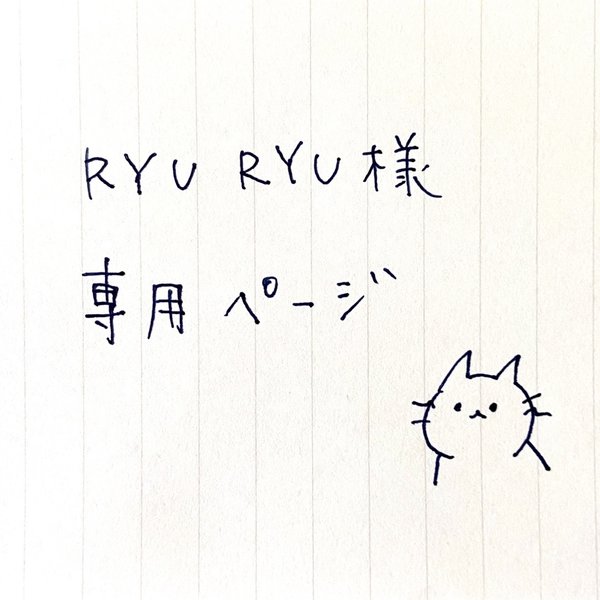 RYU RYU様
専用ページ